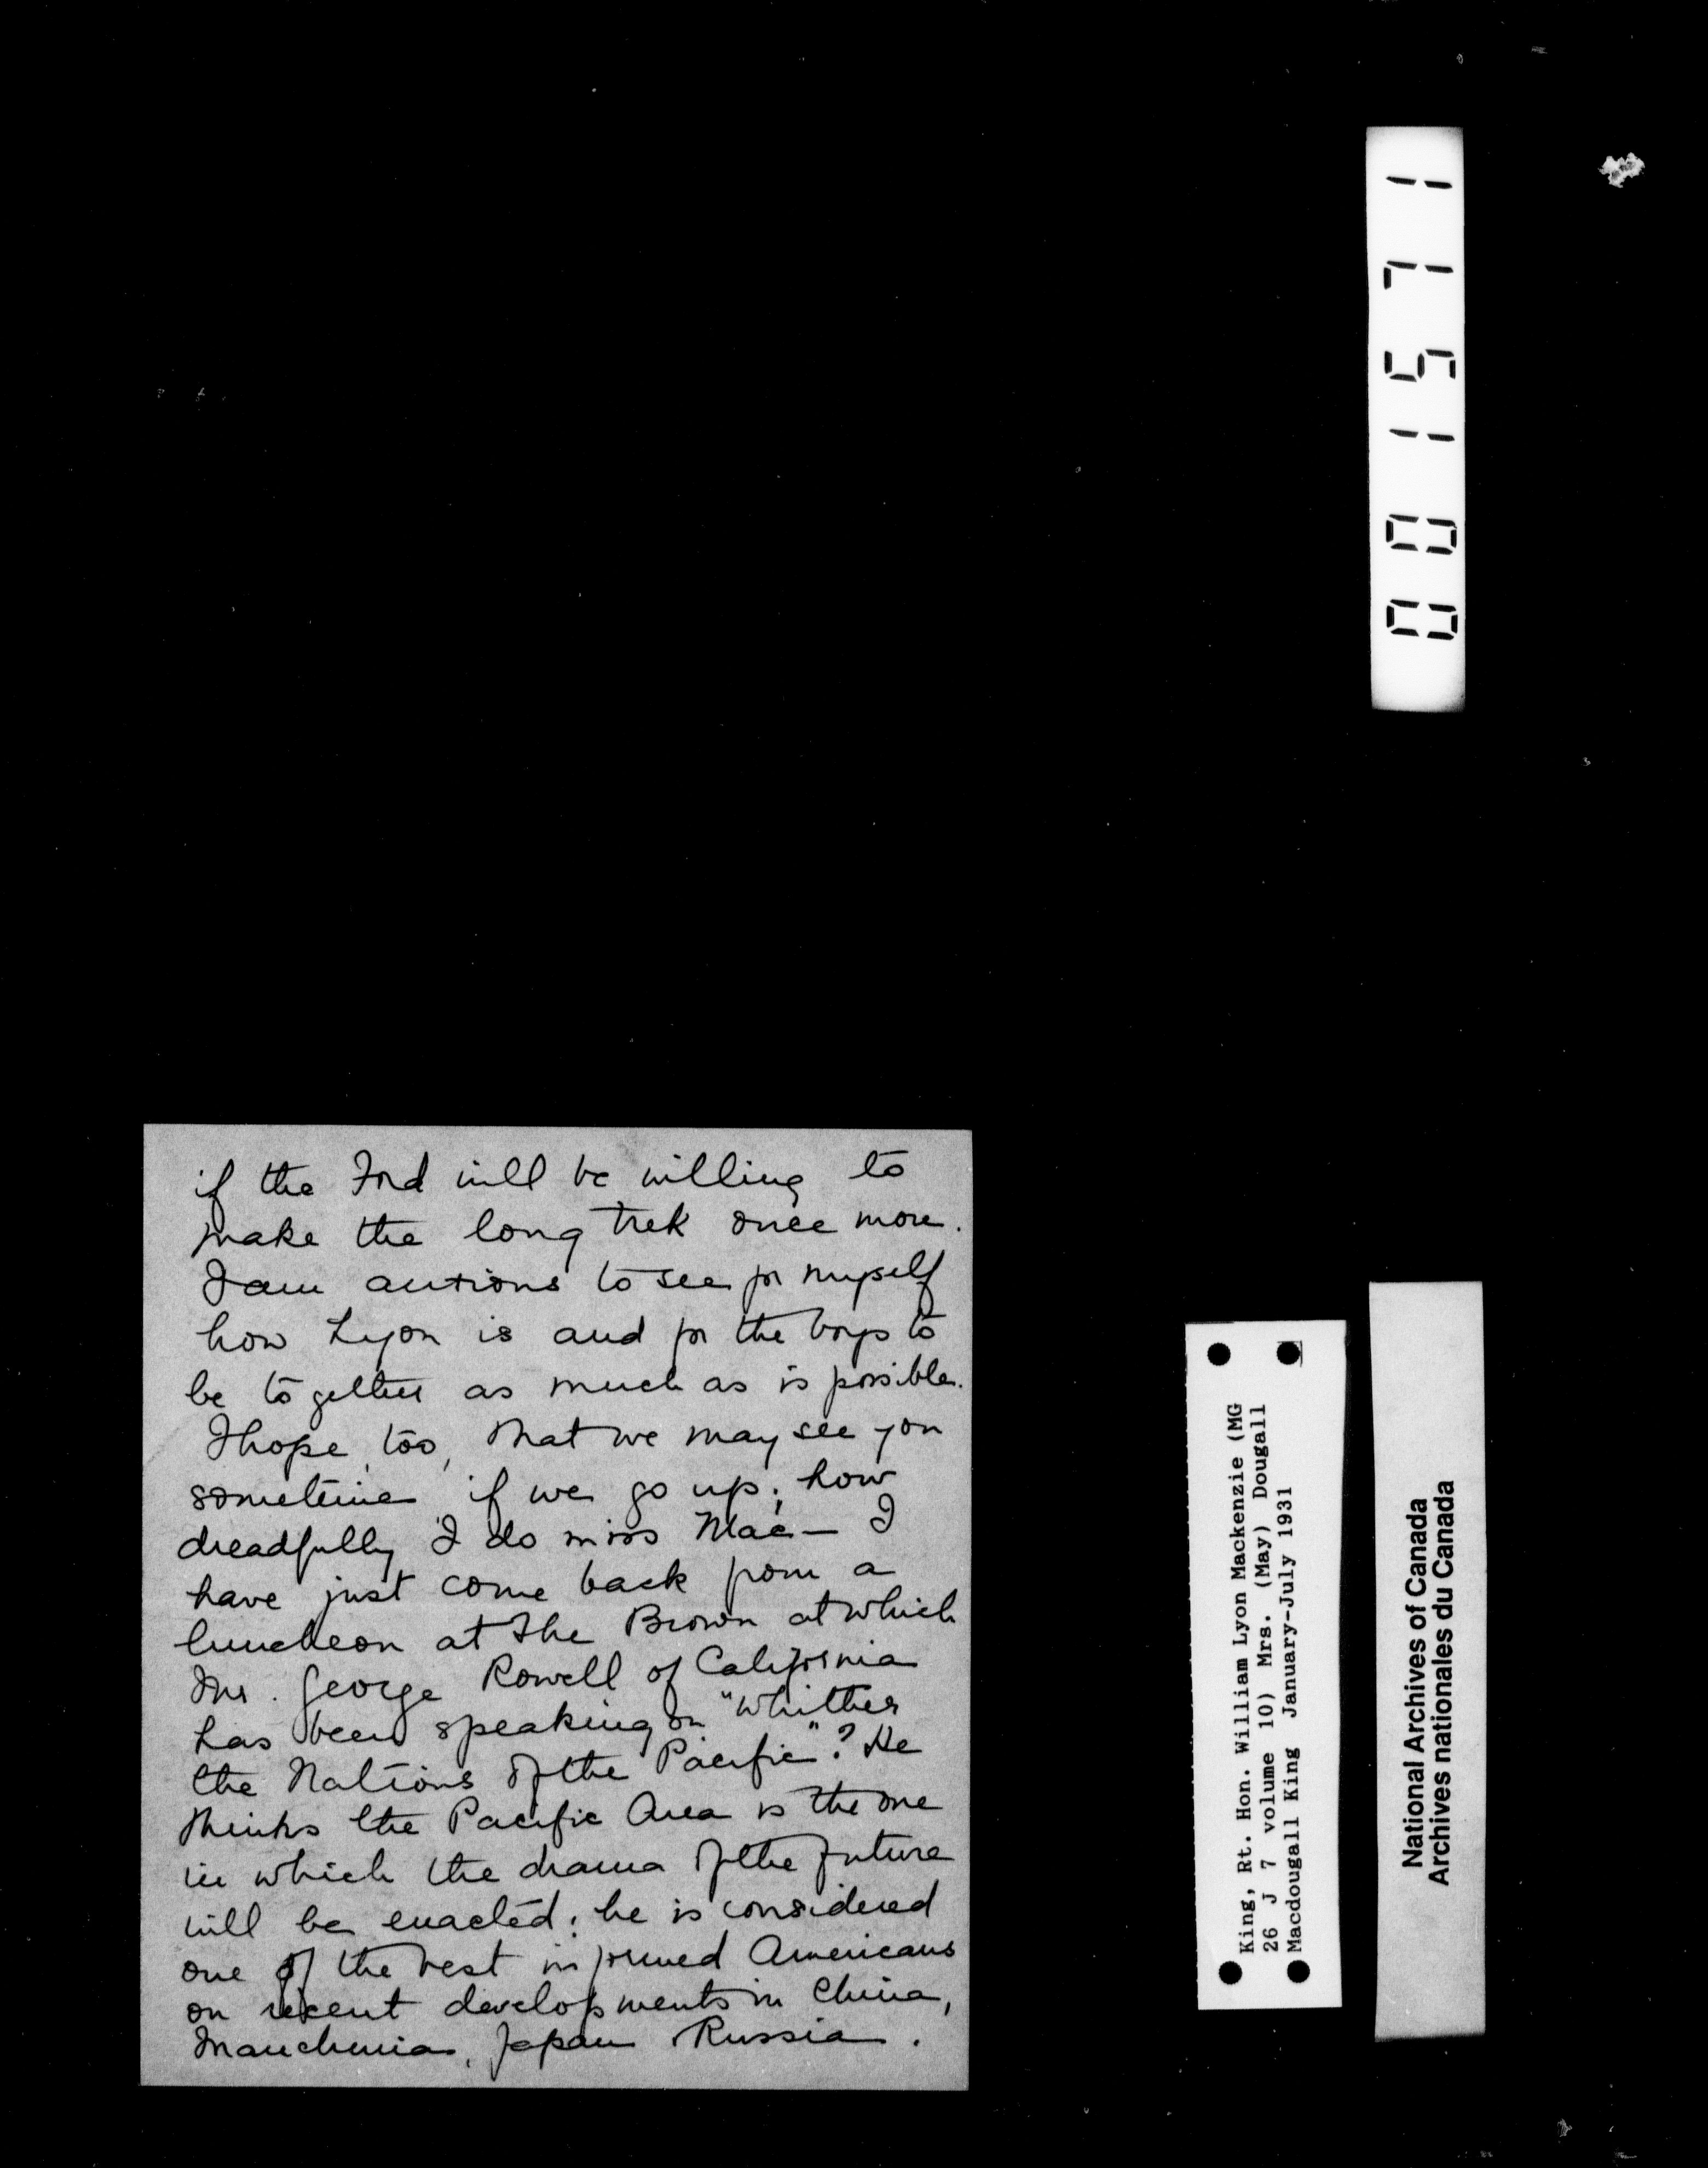 if the Ford will be willing to
make the long trek once more.
I am anxious to see for myself
how Lyon is and for the boys to
be together as much as is possible.
I hope, too, that we may see you
sometime if we go up; how
dreadfully I do miss Mac— I
have just come back from a
luncheon at the Brown at which
Mr. George Rowell of California
has been speaking on "Whither
the Nations of the Pacific"? He
thinks the Pacific Area is the one
in which the drama of the future
will be enacted; he is considered
one of the best informed Americans
on recent developments in China,
Manchuria, Japan Russia.
001571
King, Rt. Hon. William Lyon Mackenzie (MG
26 J 7 volume 10) Mrs. (May) Dougall
Macdougall King January-July 1931
National Archives of Canada
Archives nationales du Canada